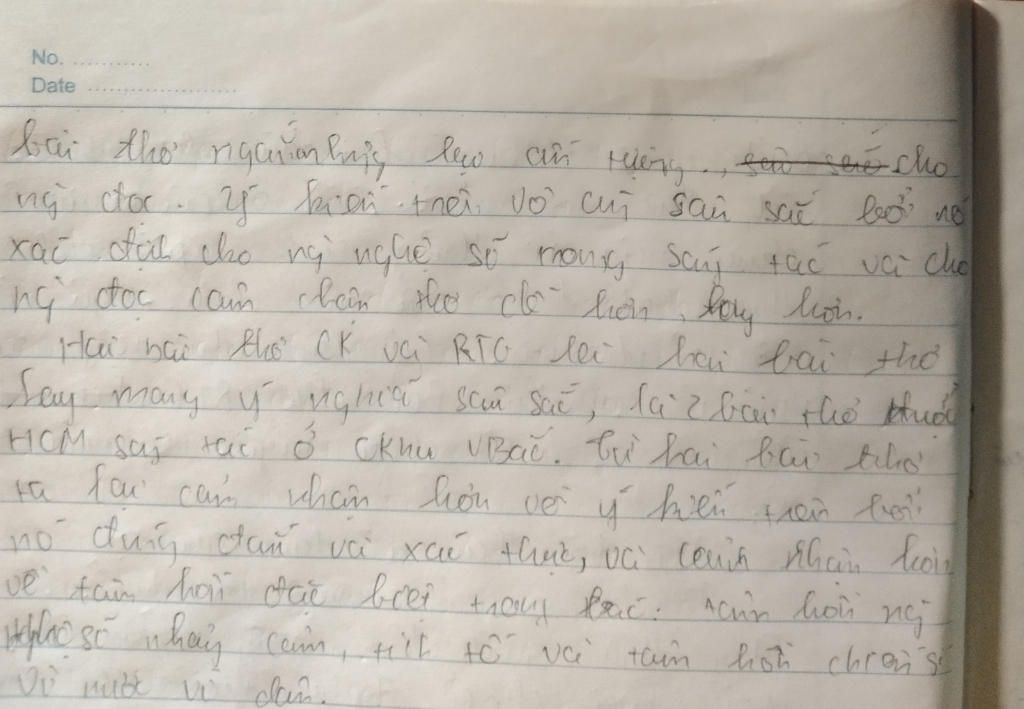 No. ............
Date ........................
bài thơ ngắn nhưng tạo ấn tượng, cho
ng đọc. Ý kiến trên vô cùng sâu sắc bởi nó
xác định cho ng nghệ sĩ trong sáng tác và cho
ng đọc cảm nhận thơ ca hơn, hay hơn.
Hai bài thơ CK và RTG là hai bài thơ
hay mang ý nghĩa sâu sắc, là 2 bài thơ được
HCM sáng tác ở CKhu VBắc. Từ hai bài thơ
ta lại cảm nhận hơn về ý kiến trên bởi
nó đúng đắn và xác thực, và cảm nhận hơn
về tâm hồn đặc biệt trong Bác. Tâm hồn ng
nghệ sĩ nhạy cảm, tinh tế và tâm hồn chiến sĩ
vì nước vì dân.